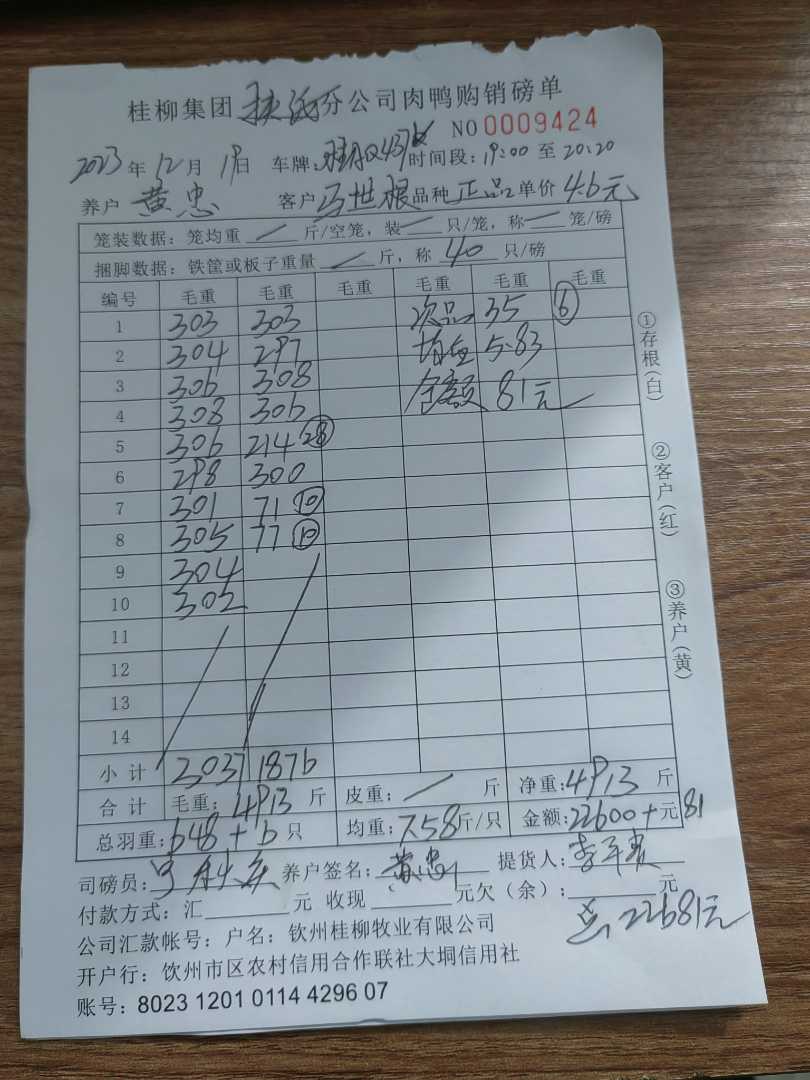 桂柳集团 分公司肉鸭购销磅单
NO 0009424
2023年12月19日 车牌: 时间段:19:00至20:20
养户 黄忠 客户 马世根 品种 正品 单价 4.6元
笼装数据:笼均重 / 斤/空笼,装 / 只/笼,称 / 笼/磅
捆脚数据:铁筐或板子重量 / 斤,称 40 只/磅
编号 毛重 毛重 毛重 毛重 毛重 毛重
1 303 303 次品 35 ⑥
2 304 297 均重 5.83
3 306 308 金额 81元
4 308 306
5 306 214 ㉘
6 298 300
7 301 71 ⑩
8 305 77 ⑩
9 304
10 302
11
12
13
14
小计 3037 1876
合计 毛重:4913斤 皮重: / 斤 净重:4913斤
总羽重:648+6只 均重:7.58斤/只 金额:22600+元81
司磅员: 养户签名:黄忠 提货人:
付款方式:汇 元 收现 元欠(余): 元
总22681元
公司汇款帐号:户名:钦州桂柳牧业有限公司
开户行:饮州市区农村信用合作联社大垌信用社
账号:8023 1201 0114 4296 07
①存根(白)
②客户(红)
③养户(黄)